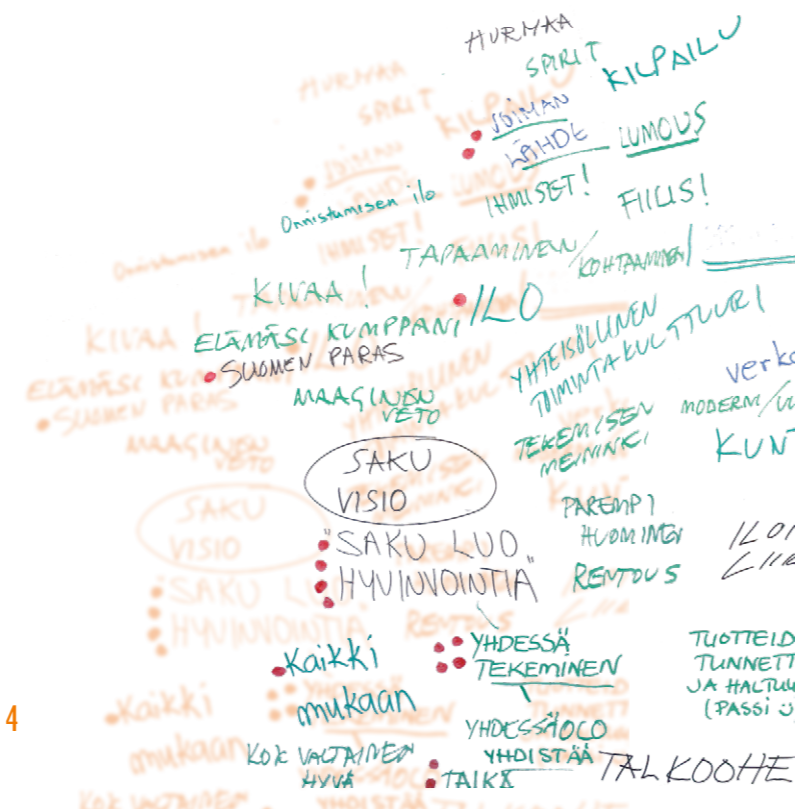 HURMAA
SPIRIT
KILPAILU
VOIMAN
LÄHDE
LUMOUS
Onnistumisen ilo
IHMISET!
FIILIS!
TAPAAMINEN/
KOHTAAMINEN/
KIVAA!
ILO
ELÄMÄSI KUMPPANI
SUOMEN PARAS
YHTEISÖLLINEN
TOIMINTAKULTTUURI
MAAGINEN
VETO
verko
TEKEMISEN
MEININKI
MODERNI/
KUNT
SAKU
VISIO
PAREMPI
HUOMINEN
"SAKU LUO
HYVINVOINTIA"
RENTOUS
ILOI
LIIK
Kaikki
mukaan
YHDESSÄ
TEKEMINEN
TUOTTEID
TUNNETT
JA HALTUU
(PASSI
4
YHDESSÄOLO
YHDISTÄÄ
KOK VALTAINEN
HYVÄ
TAIKA
TALKOOHE